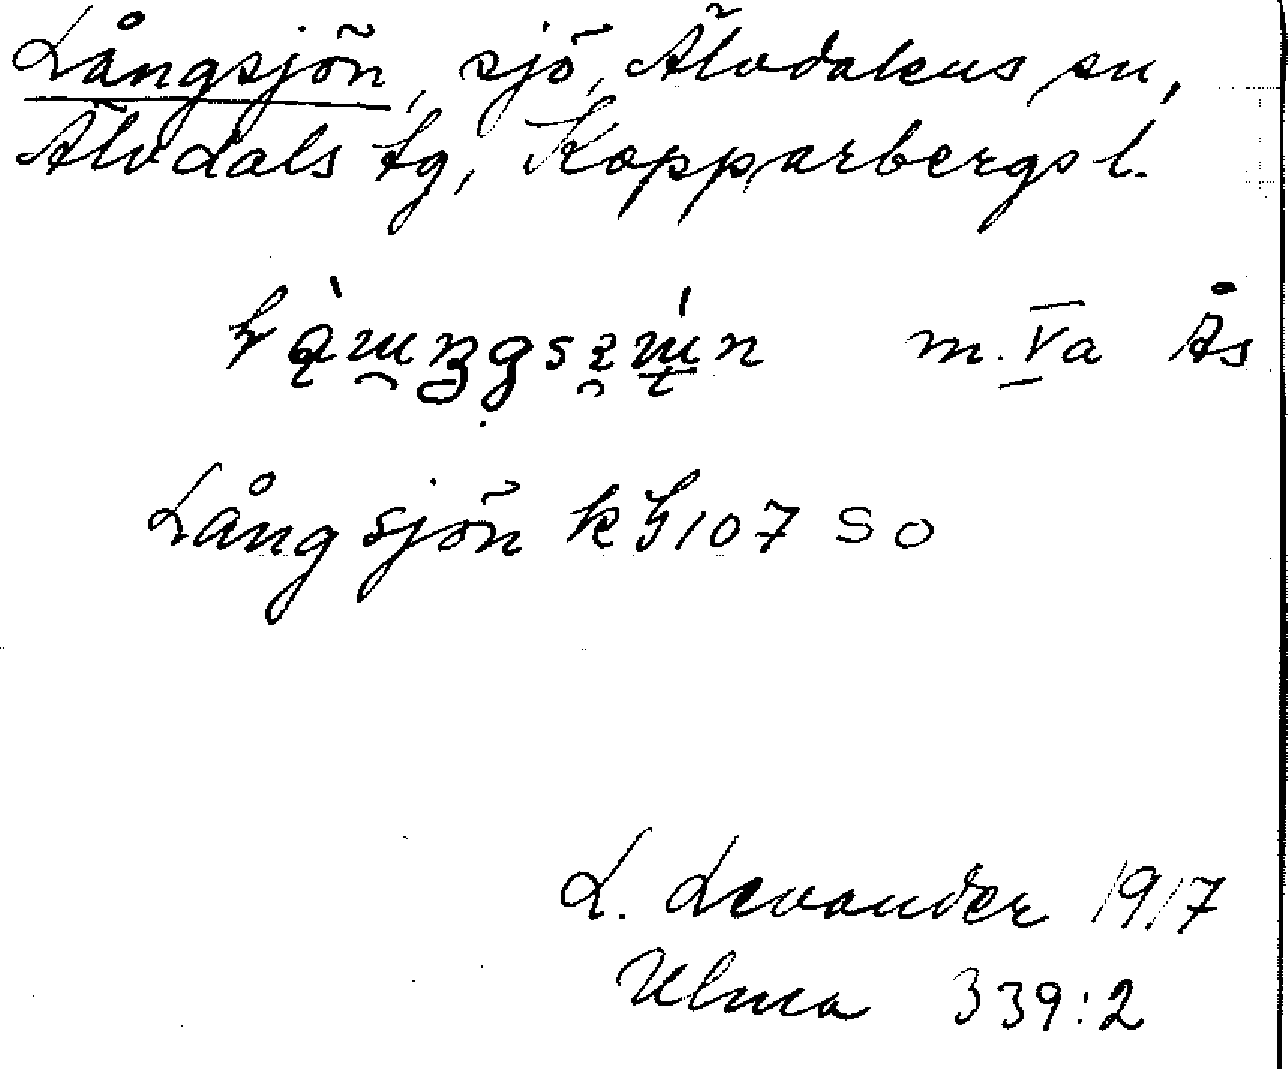 Långsjön, sjö, Älvdalens sn,
Älvdals tg, Kopparbergs l.
m. Va Ås
Långsjön kh 107 SO
L. Levander 1917
Ulma 339:2